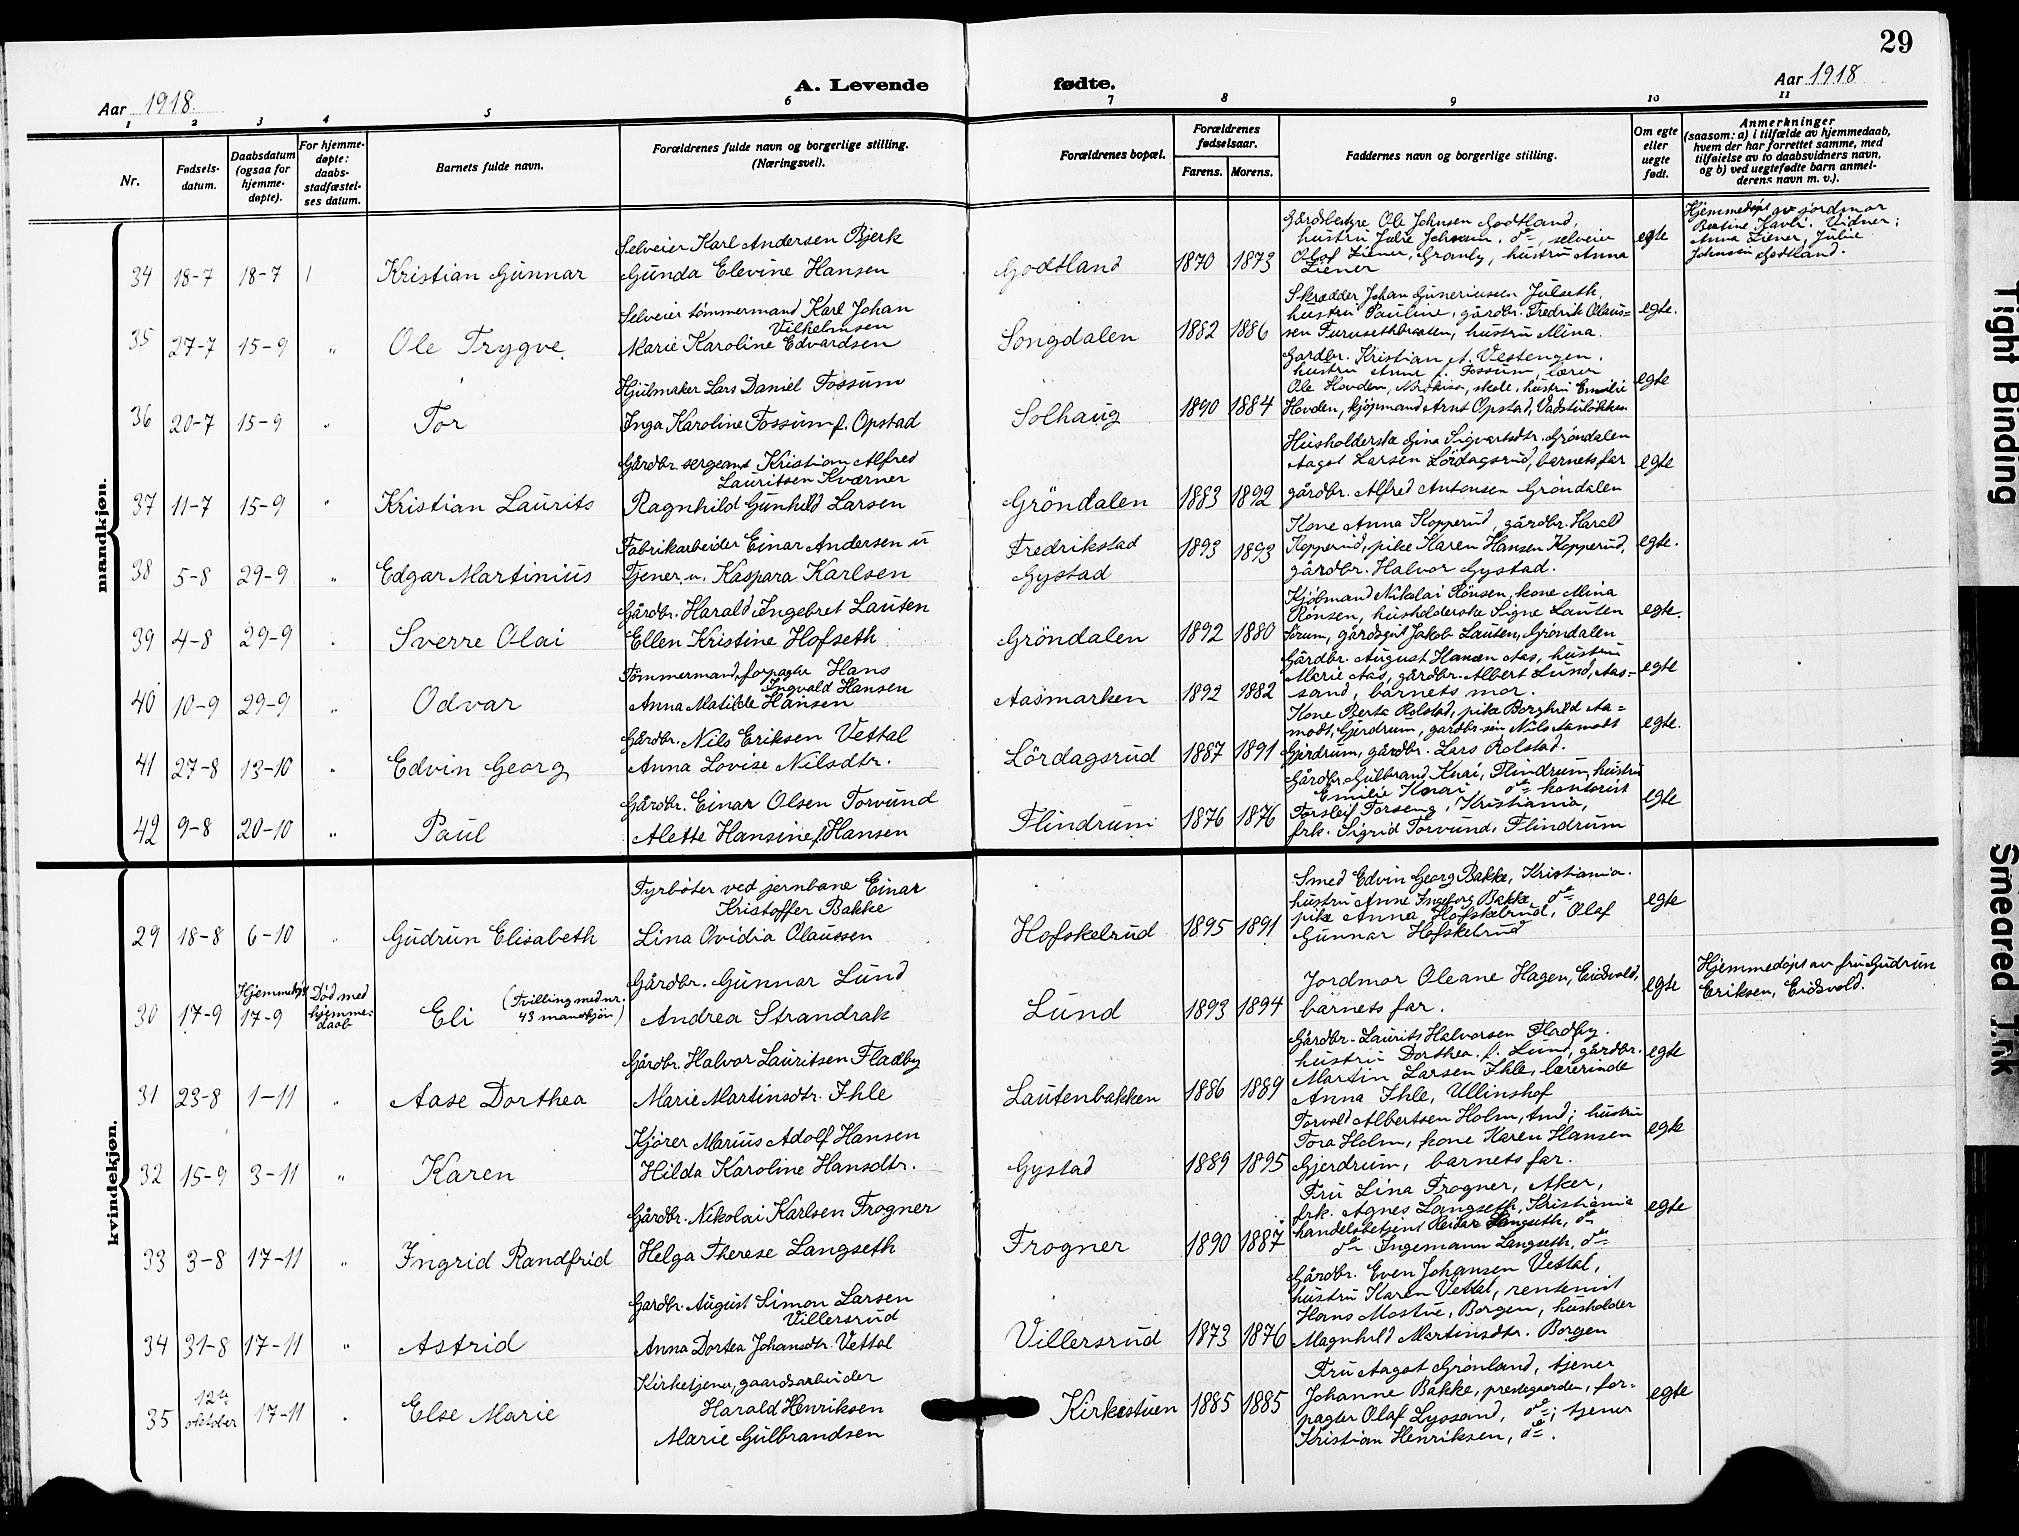 29
Aar 1918.
A. Levende fødte.
Aar 1918
1 2 3 4 5 6 7 8 9 10 11
Nr.
Fødsels-
datum.
Daabsdatum
(ogsaa for
hjemme-
døpte).
For hjemme-
døpte:
daabs-
stadfæstel-
ses datum.
Barnets fulde navn.
Forældrenes fulde navn og borgerlige stilling.
(Næringsvei).
Forældrenes bopæl.
Forældrenes
fødselsaar.
Farens. Morens.
Faddernes navn og borgerlige stilling.
Om egte
eller
uegte
født.
Anmerkninger
(saasom: a) i tilfælde av hjemmedaab,
hvem der har forrettet samme, med
tilføielse av to daabsvidners navn,
og b) ved uegtefødte barn anmel-
derens navn m. v.).
mandkjøn.
34 18-7 18-7 Kristian Gunnar
Selveier Karl Andersen Bjerk
Gunda Elevine Hansen
Godtland 1870 1873
Gårdbestyre Ole Johnsen Godtland,
hustru Julie Johnsen, do, selveier
Olof Liener, Granly, hustru Anna
Liener
egte
Hjemmedøpt av jordmor
Bertine Kavli. Vidner;
Anna Liener, Julie
Johnsen Godtland.
35 27-7 15-9 " Ole Trygve
Selveier tømmermand Karl Johan
Vilhelmsen
Marie Karoline Edvardsen
Songdalen 1882 1886
Skrædder Johan Guneriussen Julseth
hustru Pauline, gårdbr. Fredrik Olaus-
sen Furusethbraaten, hustru Mina.
egte.
36 20-7 15-9 " Tor
Hjulmaker Lars Daniel Fossum
Inga Karoline Fossum f. Opstad
Solhaug 1890 1884
Gardbr. Kristian A. Vestengen,
hustru Anne f. Fossum, lærer
Ole Hovden, skole, hustru Emilie
Hovden, kjøpmand Arnt Opstad,
egte
37 11-7 15-9 " Kristian Laurits
Gårdbr. sergeant Kristian Alfred
Lauritsen Kværner
Ragnhild Gunhild Larsen
Gröndalen 1883 1892
Husholderske Gina Sigvartsdtr. Gröndalen
Aagot Larsen Lördagsrud, barnets far
gårdbr. Alfred Antonsen Gröndalen
egte
38 5-8 29-9 " Edgar Martinius
Fabrikarbeider Einar Andersen u
Tjener u. Kaspara Karlsen
Fredrikstad
Gystad
1893 1893
Kone Anna Kopperud, gårdbr. Harald
Kopperud, pike Karen Hansen Kopperud,
gårdbr. Halvor Gystad.
egte.
39 4-8 29-9 " Sverre Olai
Gårdbr. Harald Ingebret Lauten
Ellen Kristine Hofseth
Gröndalen 1892 1880
Kjöbmand Nikolai Rönsen, kone Mina
Rönsen, husholderske Signe Lauten
Sörum, gårdgut Jakob Lauten, Gröndalen
egte.
40 10-9 29-9 " Odvar
Tømmermand, forpagter Hans
Ingvald Hansen
Anna Matilde Hansen
Aasmarken 1892 1882
Gårdbr. August Hansen Aas, hustru
Marie Aas, gårdbr. Albert Lund, Aas-
sand, barnets mor.
egte
41 27-8 13-10 " Edvin Georg
Gårdbr. Nils Eriksen Vettal
Anna Lovise Nilsdtr.
Lördagsrud 1887 1891
Kone Berte Rolstad, pike Borghild Aa-
modt, Gjerdrum, gardbr. sön Nils Aamodt
Gjerdrum, gårdbr. Lars Rolstad.
egte.
42 9-8 20-10 " Paul
Gårdbr. Einar Olsen Torvund
Alette Hansine f. Hansen
Flindrum 1876 1876
Gårdbr. Gulbrand Knai, Flindrum, hustru
Emilie Knai, do kontorist
Torsleif Torseng, Kristiania,
frk. Sigrid Torvund, Flindrum
egte
kvindekjøn.
29 18-8 6-10 " Gudrun Elisabeth
Fyrbøter ved jernbane Einar
Kristoffer Bakke
Lina Ovidia Olaussen
Hofskelrud 1895 1891
Smed Edvin Georg Bakke, Kristiania.
hustru Anne Ingeborg Bakke, do
pike Anna Hofskelrud, Olaf
Gunnar Hofskelrud
egte
30 17-9 Hjemmedøpt
17-9
Død med
hjemme-
daab
Eli (Tvilling med nr.
43 mandkjøn)
Gårdbr. Gunnar Lund
Andrea Strandrak
Lund 1893 1894
Jordmor Oleane Hagen, Eidsvold,
barnets far.
egte
Hjemmedøpt av fru Gudrun
Eriksen, Eidsvold.
31 23-8 1-11 " Aase Dorthea
Gårdbr. Halvor Lauritsen Fladby
Marie Martinsdtr. Ihle
Lautenbakken 1886 1889
Gårdbr. Laurits Halvorsen Fladby.
hustru Dorthea f. Lund, gårdbr.
Martin Larsen Ihle, lærerinde
Anna Ihle, Ullinshof
egte
32 15-9 3-11 " Karen
Kjører Marius Adolf Hansen
Hilda Karoline Hansdtr.
Gystad 1889 1895
Torvald Albertsen Holm, And; hustru
Tora Holm, kone Karen Hansen
Gjerdrum, barnets far.
egte
33 3-8 17-11 " Ingrid Randfrid
Gårdbr. Nikolai Karlsen Frogner
Helga Therese Langseth
Frogner 1890 1887
Fru Lina Frogner, Aker,
frk. Agnes Langseth, Kristiania
handelsbetjent Reidar Langseth, do
do Ingemann Langseth, do
egte
34 31-8 17-11 " Astrid
Gardbr. August Simon Larsen
Villersrud
Anna Dortea Johansdtr. Vettal
Villersrud 1873 1876
Gårdbr. Even Johansen Vettal,
hustru Karen Vettal, rentenist
Hans Mostue, Borgen, husholder
Magnhild Martinsdtr. Borgen
35 12te
oktober
17-11 " Else Marie
Kirketjener, gaardsarbeider
Harald Henriksen
Marie Gulbrandsen
Kirkestuen 1885 1885
Fru Aagot Grönland, tjener
Johanne Bakke, prestegaarden, for-
pagter Olaf Lyssand, do; tjener
Kristian Henriksen, do.
egte
Tight Binding
Smeared Ink